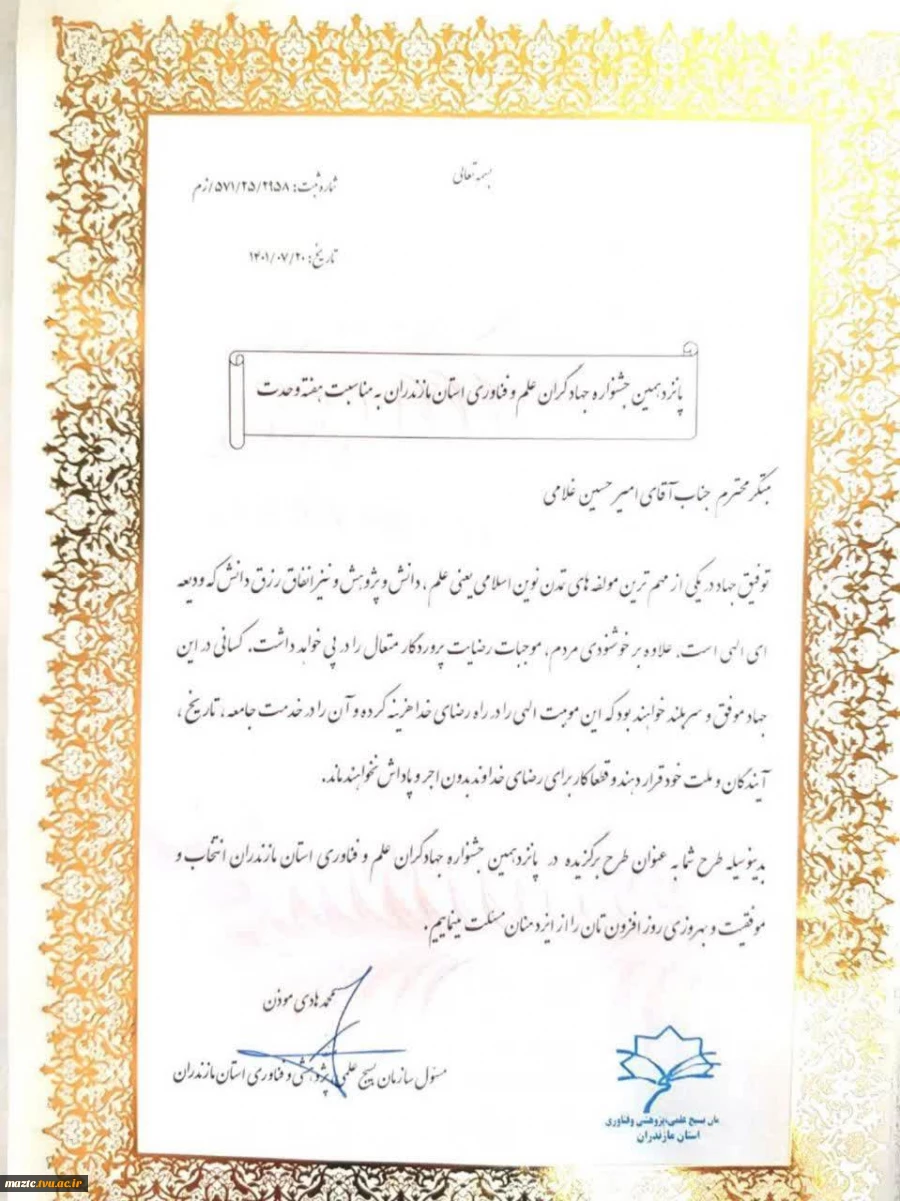 بسمه تعالی
شماره ثبت: ۵۷۱/۲۵/۲۹۵۸/زم
تاریخ: ۱۴۰۱/۰۷/۲۰
پانزدهمین جشنواره جهادگران علم و فناوری استان مازندران به مناسبت هفته وحدت
مبتکر محترم جناب آقای امیر حسین غلامی
توفیق جهاد در یکی از مهم ترین مولفه های تمدن نوین اسلامی یعنی علم، دانش و پژوهش و نیز انفاق رزق دانش که ودیعه
ای الهی است، علاوه بر خوشنودی مردم، موجبات رضایت پروردگار متعال را در پی خواهد داشت. کسانی در این
جهاد موفق و سربلند خواهند بود که این موهبت الهی را در راه رضای خدا هزینه کرده و آن را در خدمت جامعه، تاریخ،
آیندگان و ملت خود قرار دهند و قطعا کار برای رضای خداوند بدون اجر و پاداش نخواهند ماند.
بدینوسیله طرح شما به عنوان طرح برگزیده در پانزدهمین جشنواره جهادگران علم و فناوری استان مازندران انتخاب و
موفقیت و بهروزی روز افزون تان را از ایزد منان مسئلت مینماییم.
محمد هادی موذن
مسئول سازمان بسیج علمی، پژوهشی و فناوری استان مازندران
مان بسیج علمی،پژوهشی وفناوری
استان مازندران
maztc.tvu.ac.ir